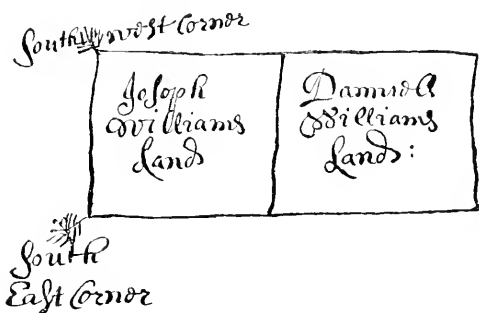 South west Corner
Joseph
Williams
Land
Damuell
Williams
Land:
South
East Corner